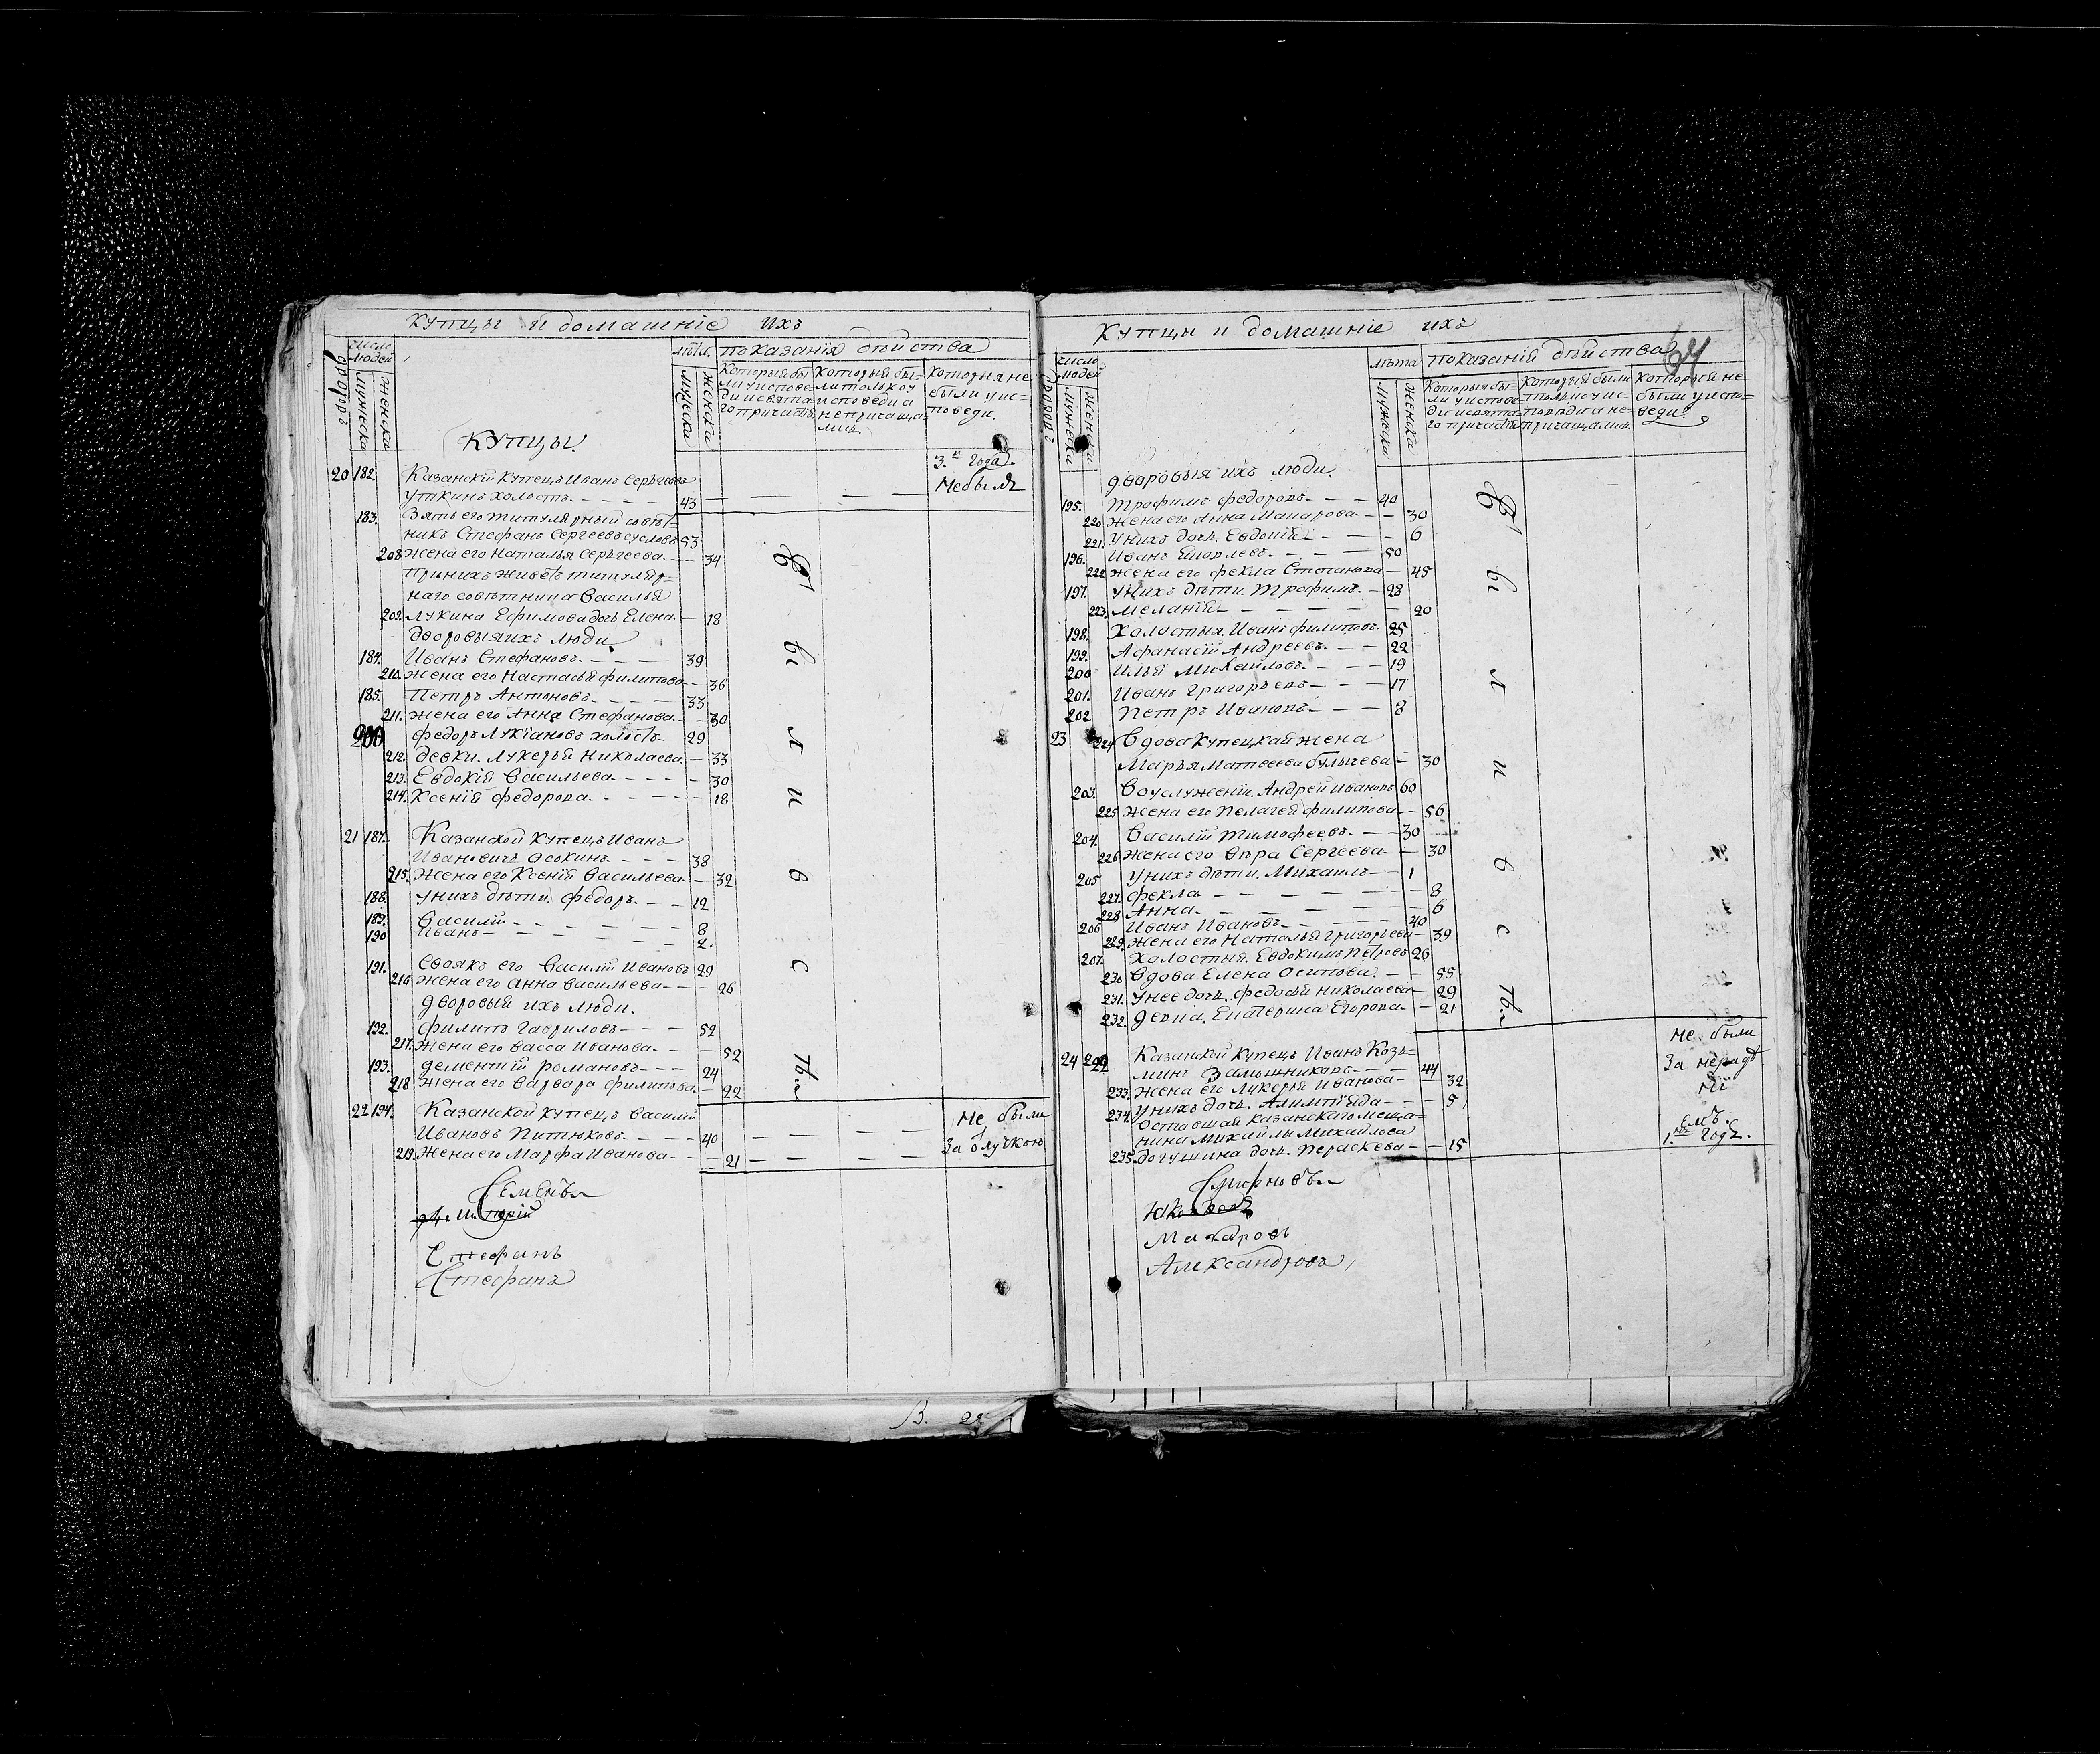 Купцы и домашніе ихъ
число людей
лѣта. показанія дѣйства
дворовъ
мужеска
женска
мужеска
женска
которыя бы-
ли у испове-
ди и свята-
го причастія
которыя бы-
ли только у
исповеди а
не причаща-
лись.
которыя не
были у ис-
поведи.
Купцы.
3. года.
Небылъ
20 182. Казанскій купецъ Иванъ Серьгеевъ
Уткинъ холостъ. 43
183. Зять его титулярный совѣт-
никъ Стефанъ Сергеевъ Сусловъ 53
208 жена его Наталья Серьгеева. 34
при нихъ живетъ титуляр-
наго советника Василья
209. Лукина Ефимова дочь Елена. 18
дворовыя ихъ люди
184. Иванъ Стефановъ. 39
210. жена его Настасья Филипова 36
185. Петръ Антоновъ. 33
211. жена его Анна Стефанова. 30
Федоръ Лукіановъ холостъ. 29
212. девки. Лукерья Николаева 33
213. Евдокія Васильева 30
214. Ксенія Федорова. 18
21 187. Казанской купецъ Иванъ
Ивановичъ Осокинъ. 38
215. жена его Ксенія Васильева. 32
188. у нихъ дѣти. Федоръ. 12
189. Василій 8
190 Иванъ 2.
191. Своякъ его Василій Ивановъ 29
216 жена его Анна Васильева 26
дворовыя ихъ люди.
192. Филипъ Гавриловъ 52
217. жена его Васса Иванова. 52
193. Дементій Романовъ 24
218 жена его Варвара Филипова. 22
22 194. Казанской купецъ Василій
Ивановъ Питюковъ. 40
219. жена его Марфа Иванова 21
Не были
За отлучкою
В ы л и в с ть
Семенъ
Стефанъ
Стефанъ
В.
Купцы и домашніе ихъ
64
число людей
лѣта показанія дѣйства
дворовъ
мужеска
женска
мужеска
женска
которыя бы-
ли у испове-
ди и свята-
го причастія
которыя были
только у ис-
поведи а не-
причащались.
которыя не
были у испо-
веди.
дворовыя ихъ люди
195. Трофимъ Федоровъ. 40
220 жена его Анна Макарова 30
221. у нихъ дочь. Евдокія 6
196. Иванъ Яковлевъ. 50
222 жена его Фекла Степанова 45
197. у нихъ дѣти. Трофимъ. 28
223 Меланія 20
198. холостыя. Иванъ Филиповъ. 25
199. Афанасій Андреевъ. 22
200 Илья Михайловъ. 19
201. Иванъ Григорьевъ 17
202 Петръ Ивановъ 8
23 224 Вдова купецкая жена
Марья Матвеева Булычева 30
203. Во услуженіи. Андрей Ивановъ 60
225 жена его Пелагея Филипова 56
204. Василій Тимофеевъ. 30
226 жена его Вѣра Сергеева 30
205 у нихъ дѣти. Михаилъ 1
227. Фекла 8
228 Анна. 6
206 Иванъ Ивановъ 40
229. жена его Наталья Григорьева 39
207. холостыя. Евдокимъ Петровъ 26
230 Вдова Елена Осипова. 55
231. у нее дочь. Федосья Николаева 29
232. девка. Екатерина Егорова 21
24 Казанской купецъ Иванъ Козь-
минъ 44
233. жена его Лукерья Иванова 32
234. у нихъ дочь. Алимпіада 5
Оставшая казанскаго меща-
нина Михайлы Михайлова
235. дочь. Пераскева 15
Не были
За нераде
ні
емъ.
1. годъ.
В ы л и в с ть
Смирновъ
Макаровъ
Александровъ